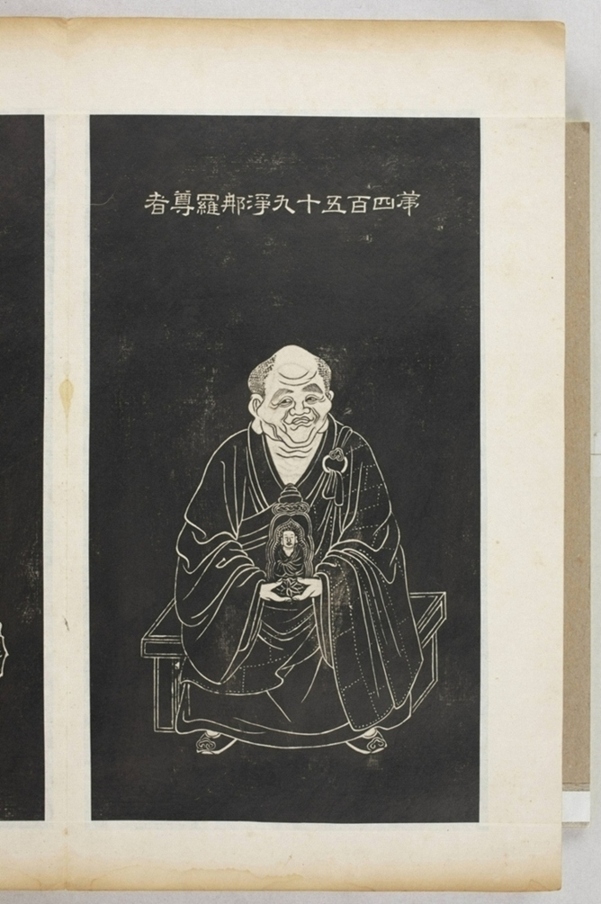 苐四百五十九淨那羅尊者